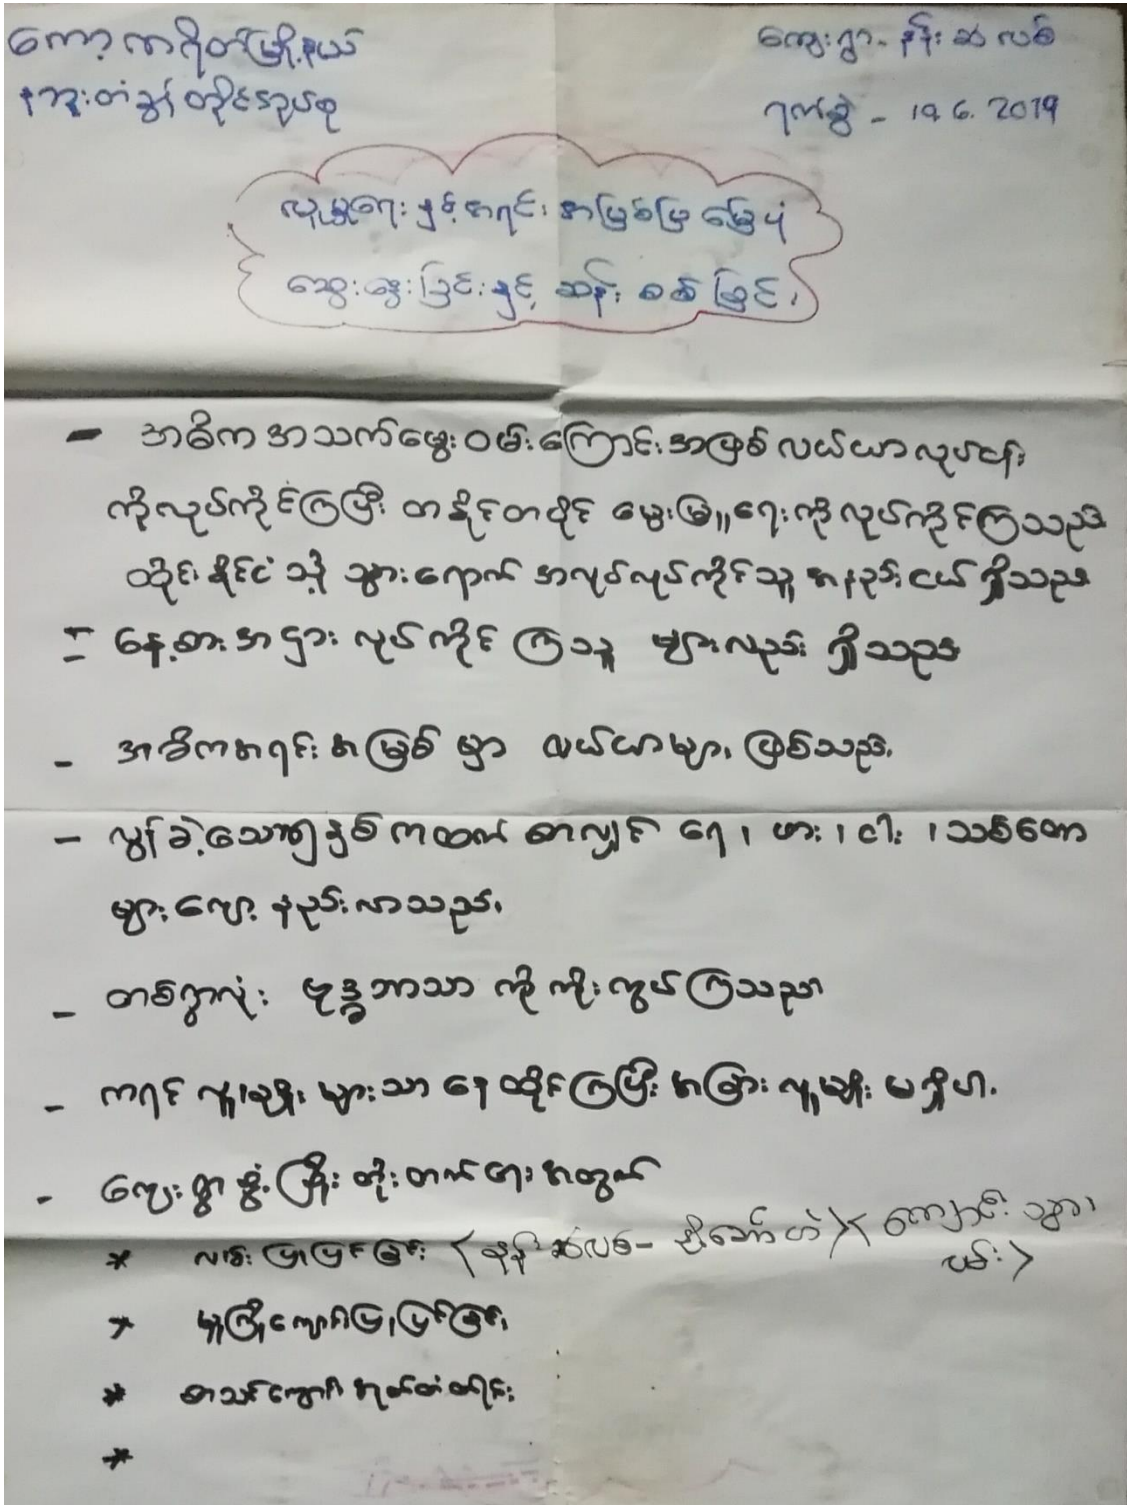 ကော့ကရိတ်မြို့နယ် ကျေးရွာ - နန်းဆလစ်
အုပ်စု ရက်စွဲ - 19.6.2019
လူမှုရေးနှင့်အရင်းအမြစ်ပြမြေပုံ
ဆွေးနွေးခြင်းနှင့် ဆန်းစစ်ခြင်း
- အဓိကအသက်မွေးဝမ်းကြောင်းအဖြစ် လယ်ယာလုပ်ငန်း
ကိုလုပ်ကိုင်ကြပြီး တနိုင်တပိုင် မွေးမြူရေးကိုလုပ်ကိုင်ကြသည်။
ထိုင်းနိုင်ငံသို့ သွားရောက်အလုပ်လုပ်ကိုင်သူ အနည်းငယ်ရှိသည်။
- နေ့စားအငှားလုပ်ကိုင်ကြသူ များလည်းရှိသည်။
- အဓိကအရင်းအမြစ်မှာ လယ်ယာများဖြစ်သည်။
- လွန်ခဲ့သော ၅ နှစ်ကထက်စာလျှင် ရေ၊ ဖား၊ ငါး၊ သစ်တော
များလျော့နည်းလာသည်။
- တစ်ရွာလုံး ဗုဒ္ဓဘာသာကိုကိုးကွယ်ကြသည်။
- ကရင်လူမျိုးများသာ နေထိုင်ကြပြီး အခြားလူမျိုး မရှိပါ။
- ကျေးရွာဖွံ့ဖြိုးတိုးတက်ရေးအတွက်
* လမ်းပြုပြင်ခြင်း (နန်းဆလစ် - ) (ကျောင်းသွား
လမ်း)
* မူကြိုကျောင်းပြုပြင်ခြင်း
* စာသင်ကျောင်းအုတ်တံတိုင်း
*